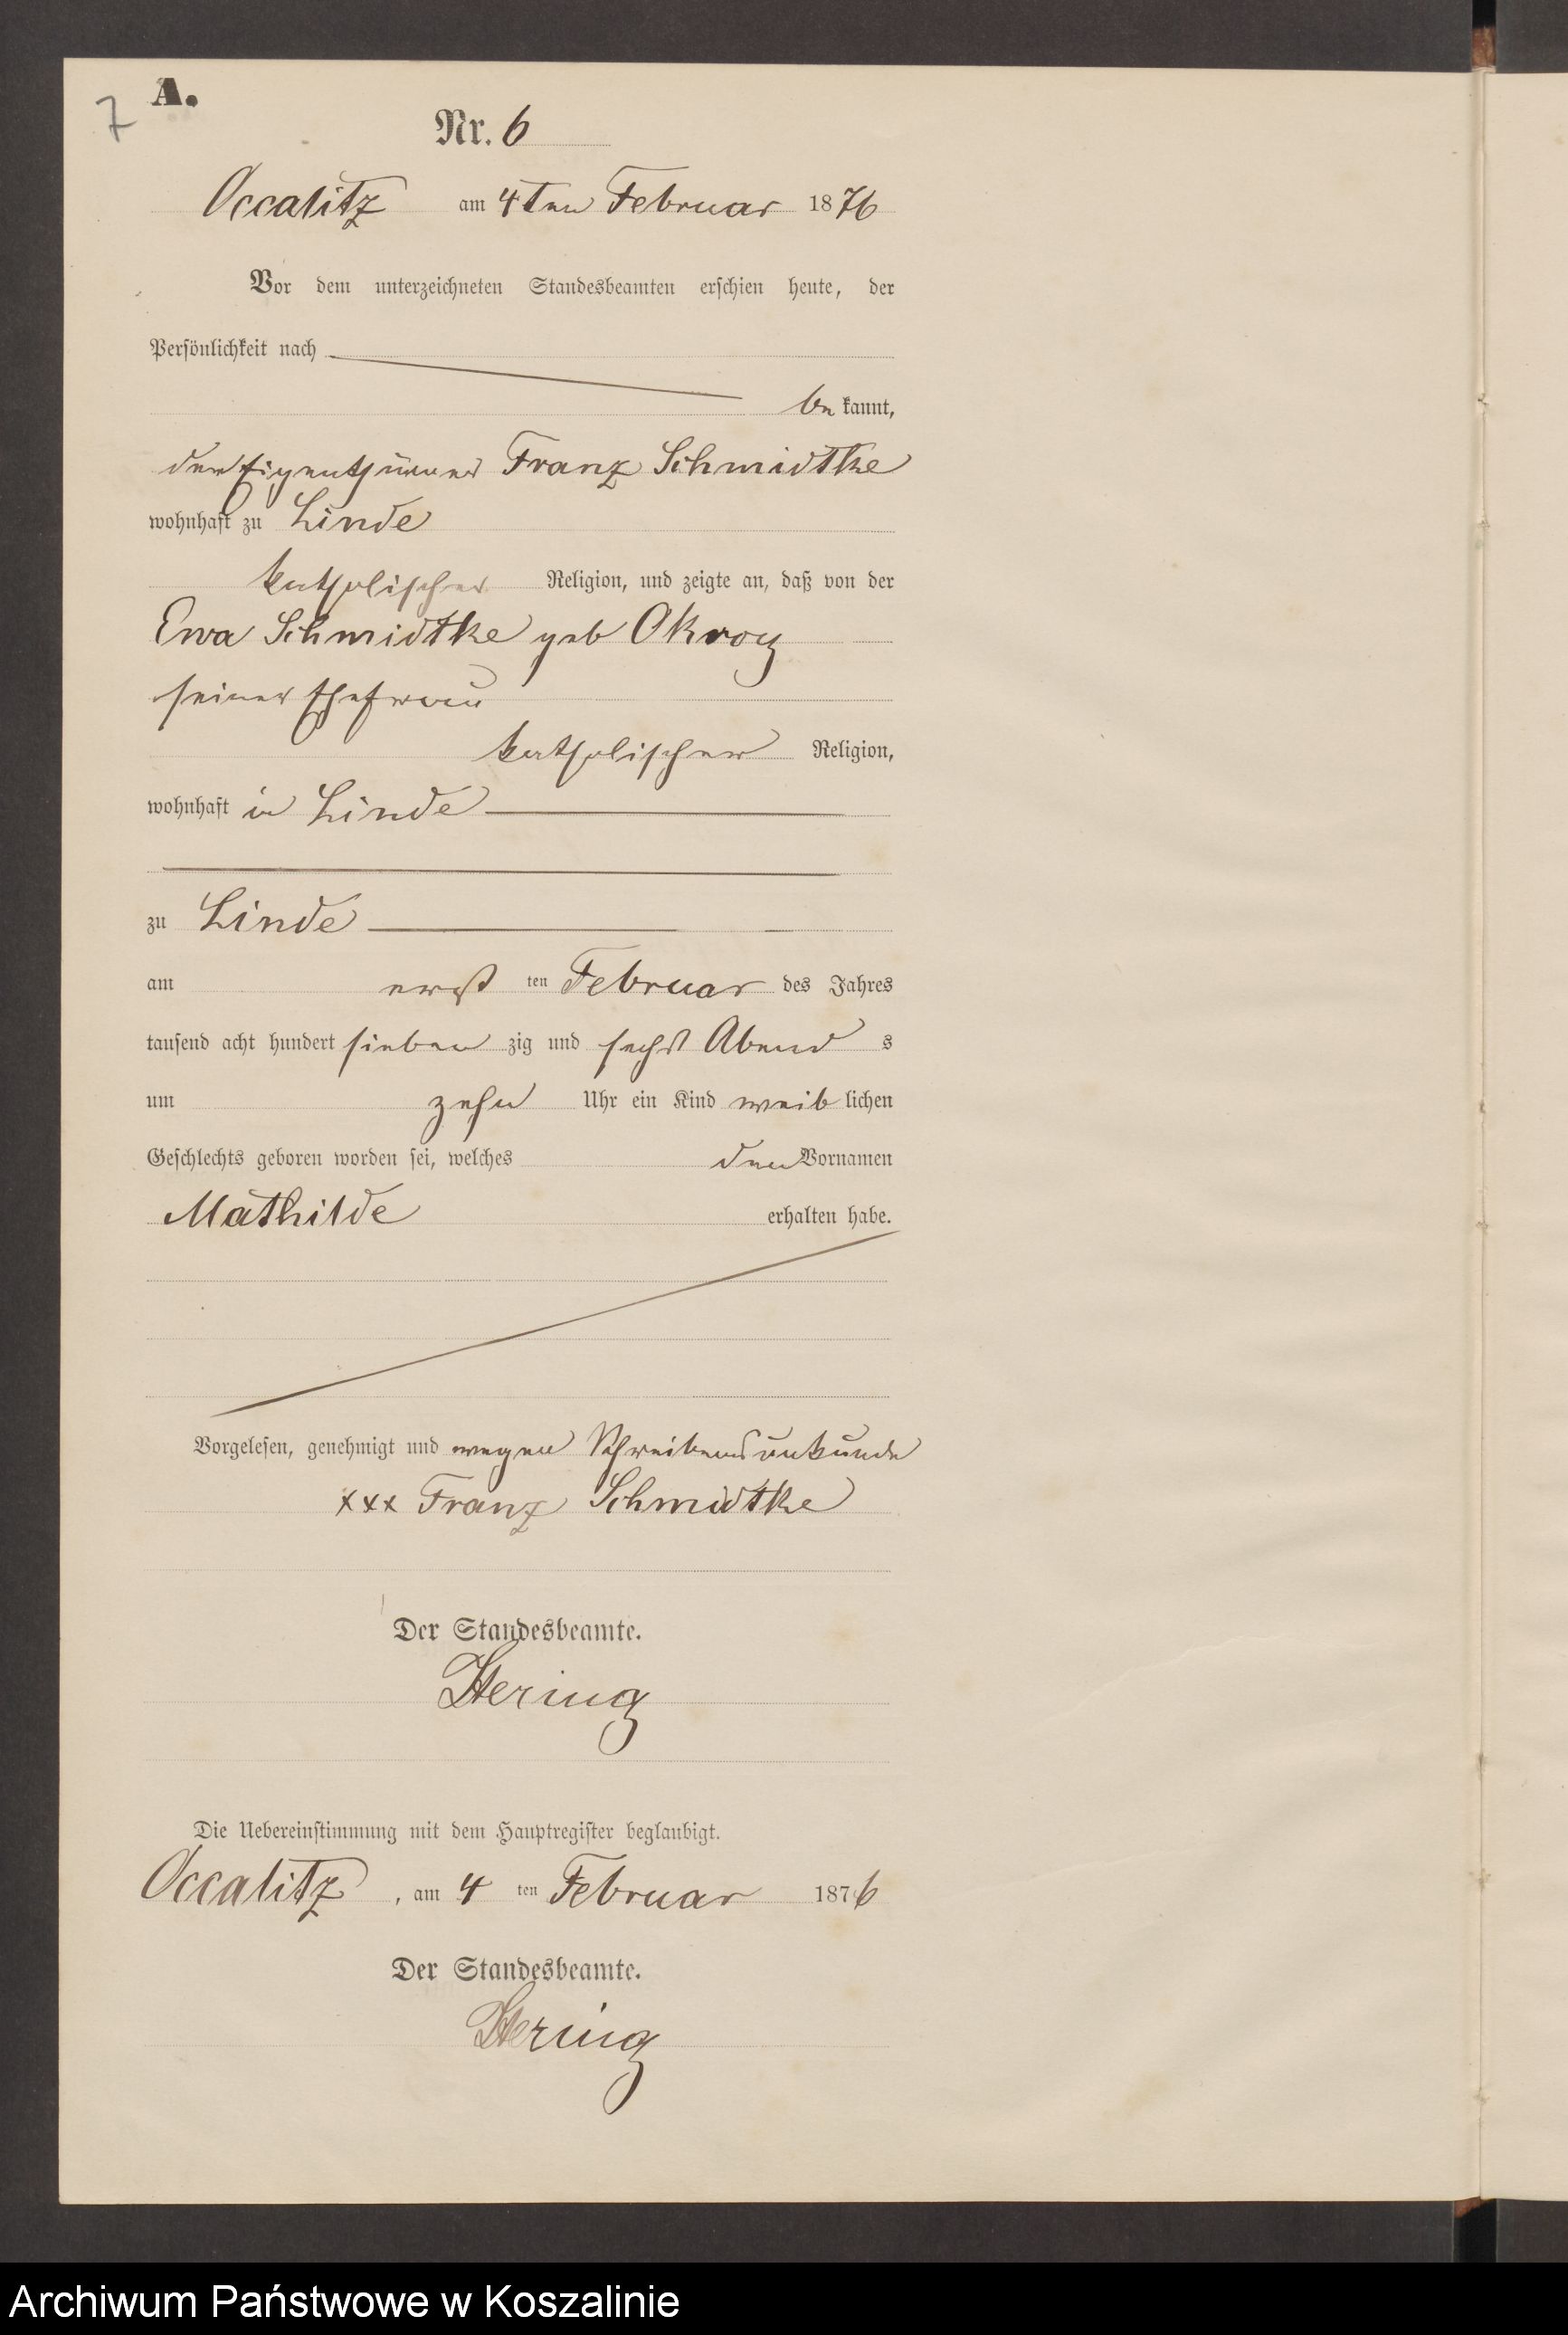 7
A.
Nr. 6
Occalitz am 4ten Februar 1876
Vor dem unterzeichneten Standesbeamten erschien heute, der
Persönlichkeit nach
be kannt,
der Eigenthümer Franz Schmidtke
wohnhaft zu Linde
katholischer Religion, und zeigte an, daß von der
Ewa Schmidtke geb Okroy
seiner Ehefrau
katholischer Religion,
wohnhaft in Linde
zu Linde
am erst ten Februar des Jahres
tausend acht hundert sieben zig und sechs Abend s
um zehn Uhr ein Kind weib lichen
Geschlechts geboren worden sei, welches den Vornamen
Mathilde erhalten habe.
Vorgelesen, genehmigt und wegen Schreibensunkunde
xxx Franz Schmidtke
Der Standesbeamte.
Hering
Die Uebereinstimmung mit dem Hauptregister beglaubigt.
Occalitz, am 4 ten Februar 1876
Der Standesbeamte.
Hering
Archiwum Państwowe w Koszalinie